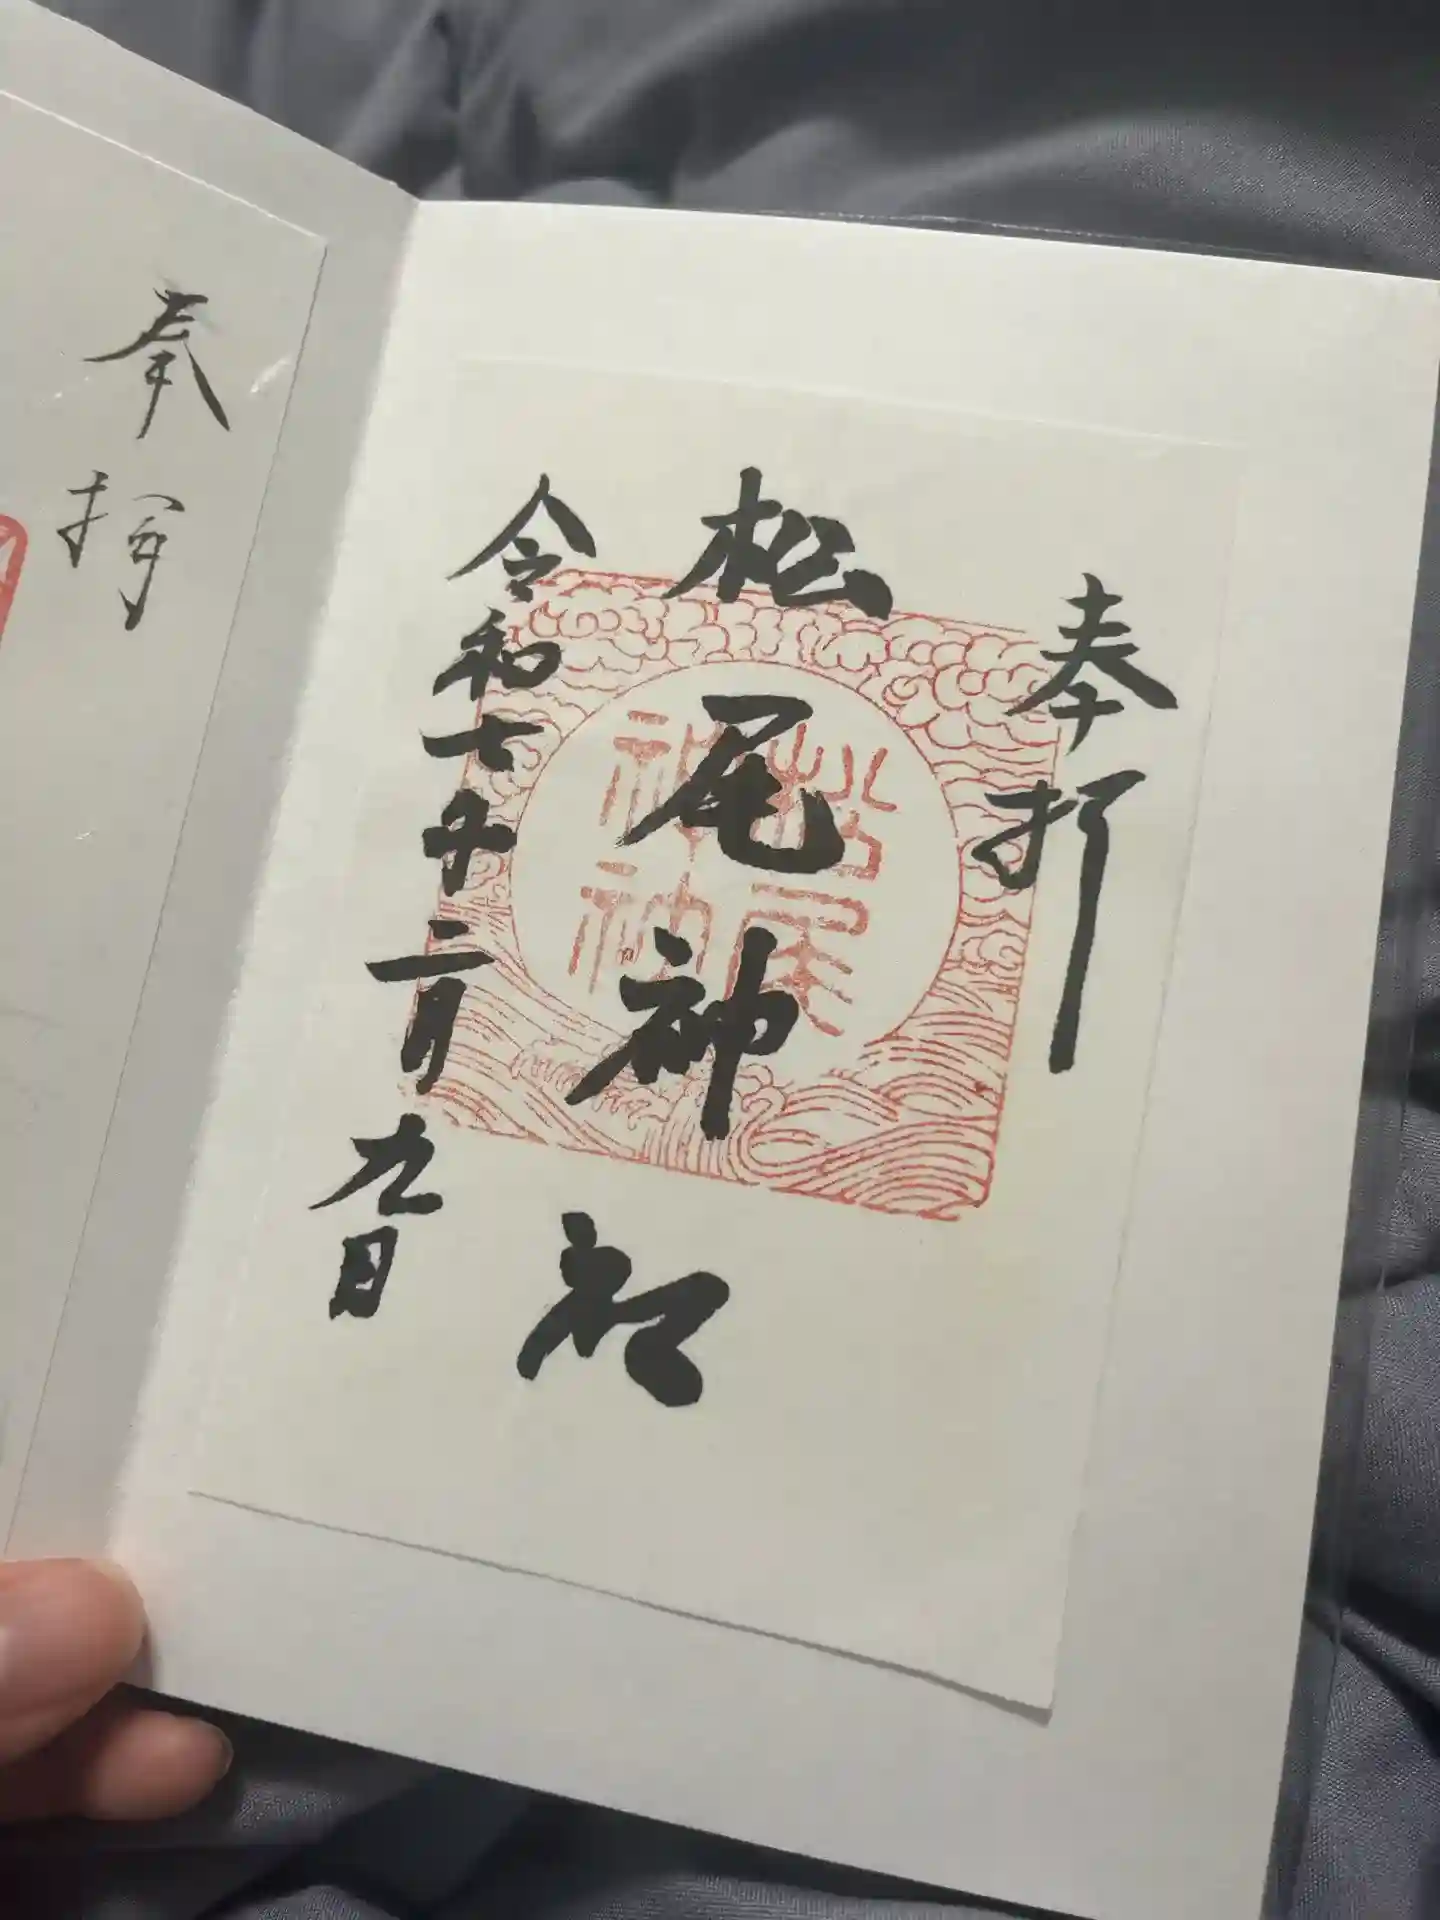 奉拝
松尾神社
令和七年二月九日
松尾
神社
奉拝